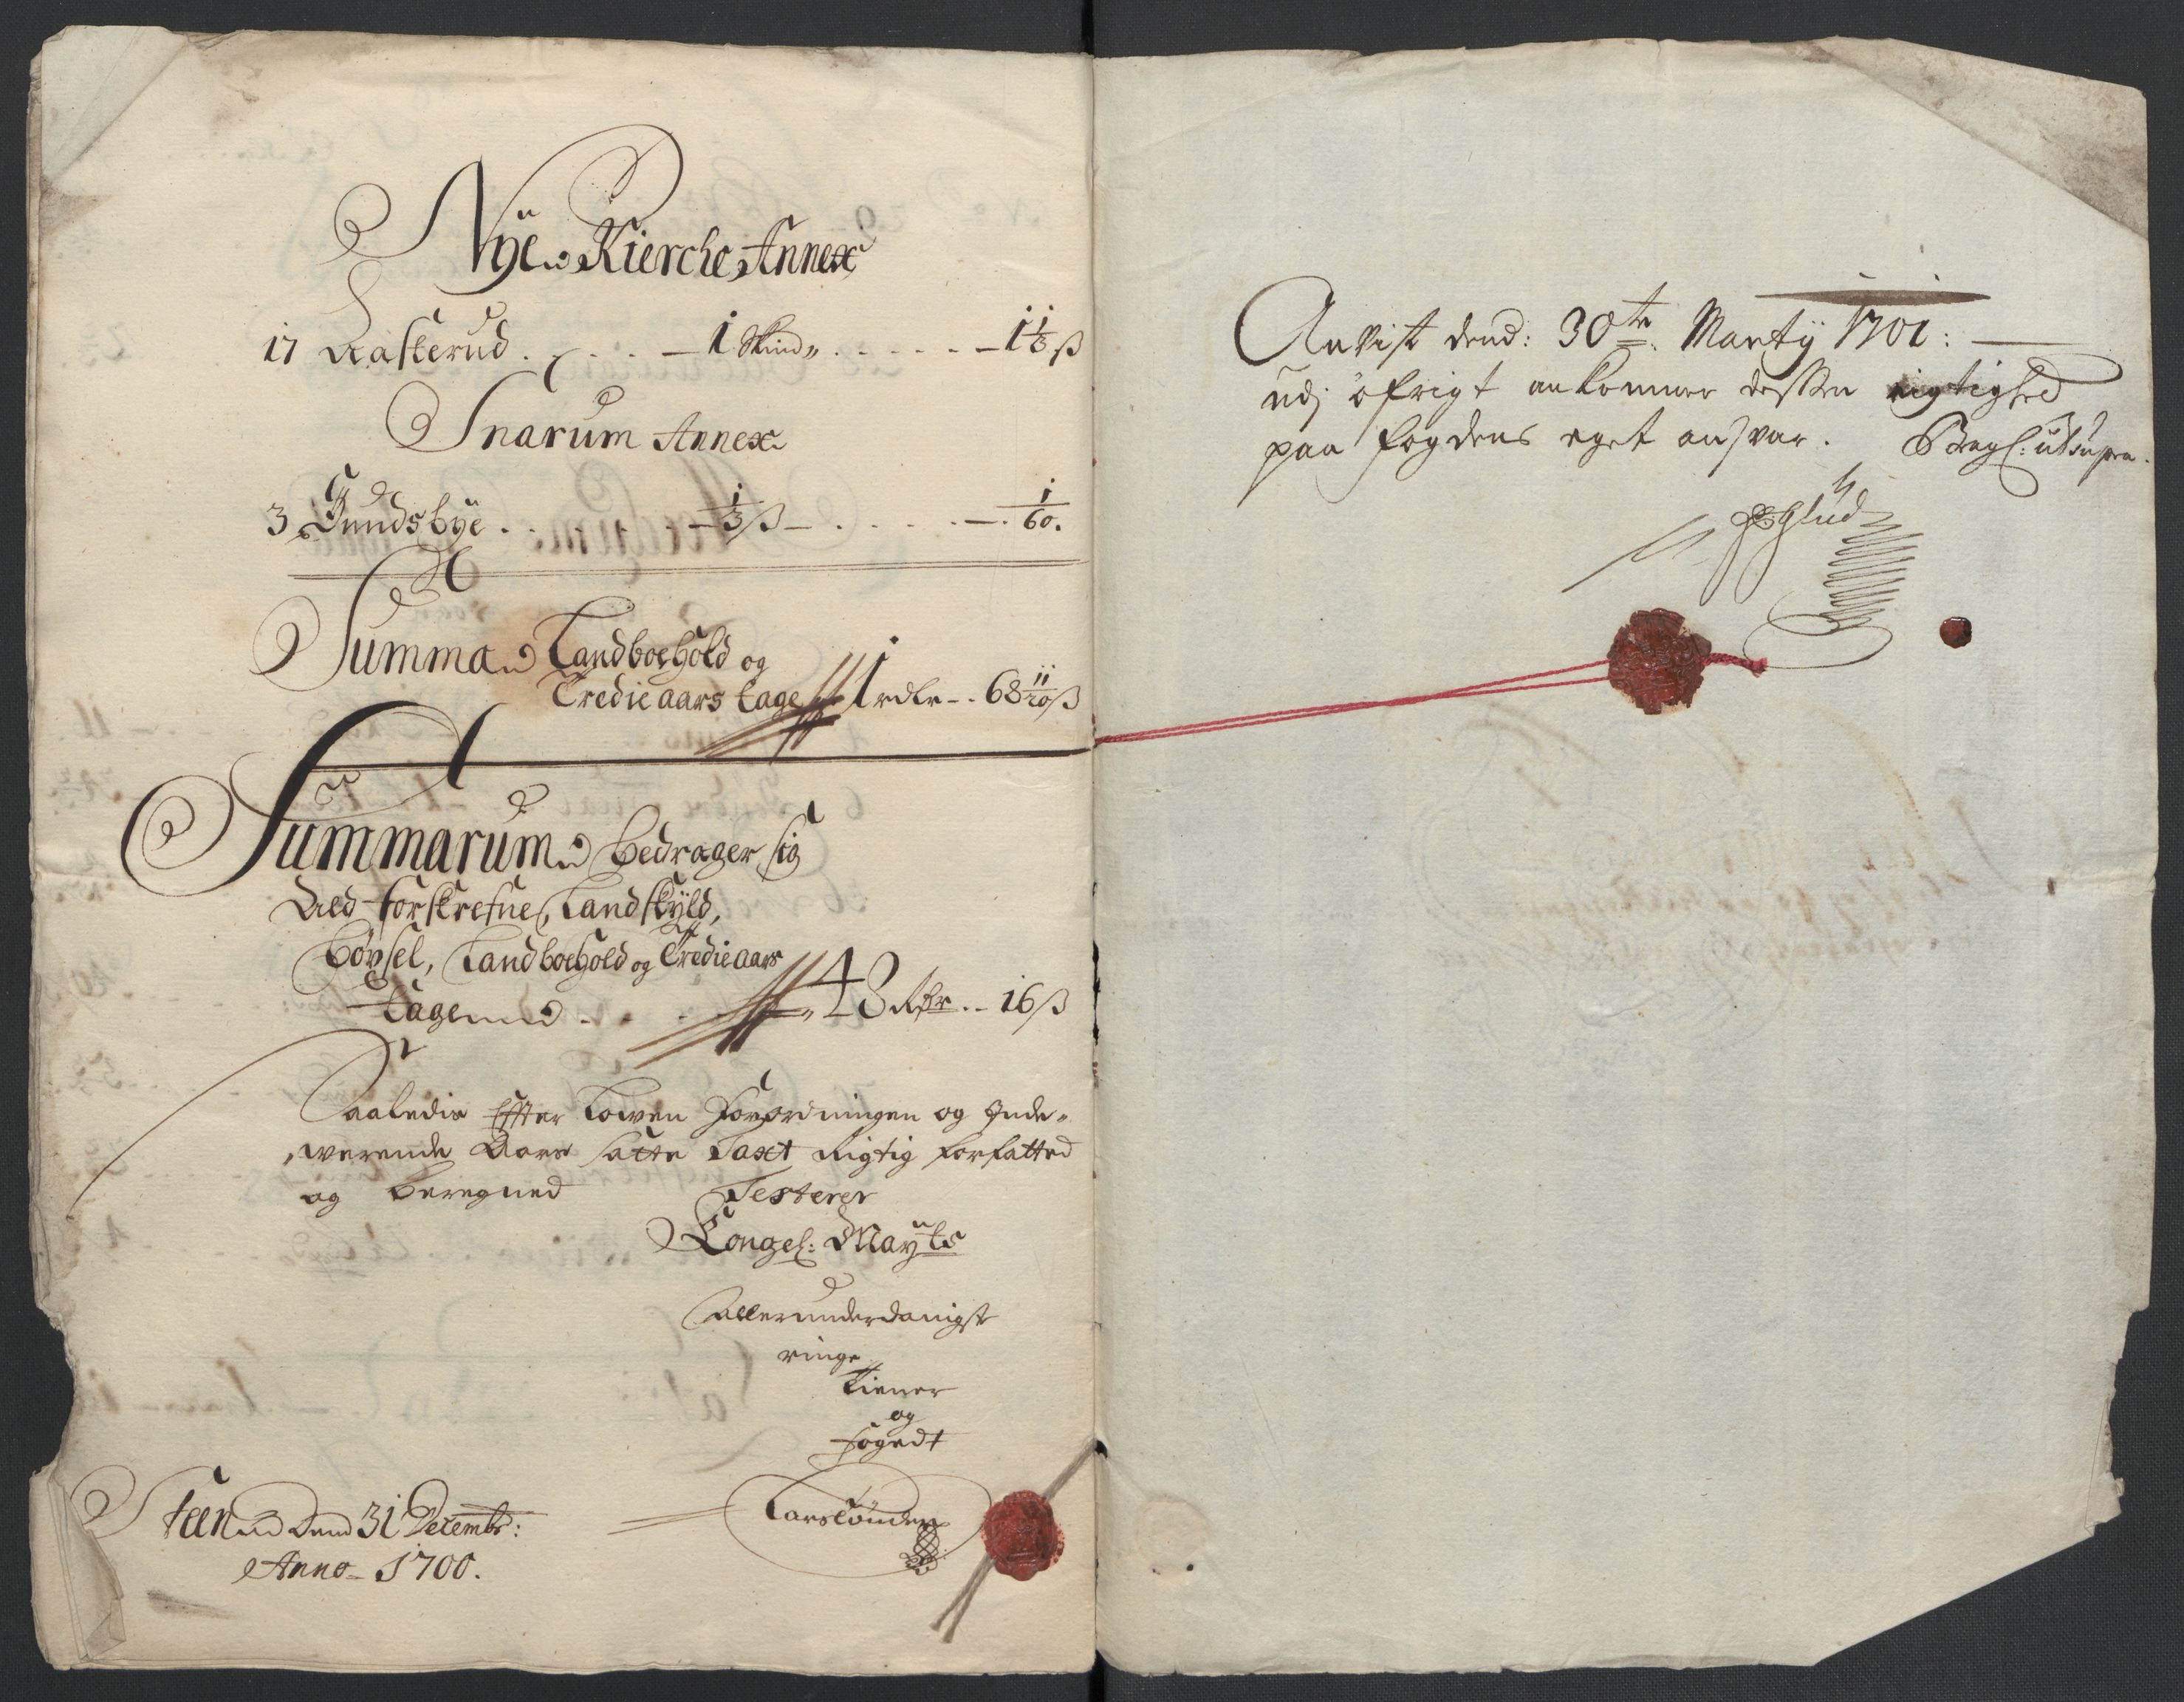 Nÿe Kierche Annex
17 Rasterud . . . . 1 Skind . . . . . 1 1/3 ß
Snarum Annex
3 Gundsbÿe . . . . 1/3 ß . . . . . 1/60.
Summa Landboehold og
Tredie aars tage 1 rdlr - . 68 11/20 ß
Summarum bedrager sig
Ald forskrefne, Landskÿld,
Bøxsel, Landboehold og Tredie aars
tage . . . 48 Rdr . . 16 ß
Saaledis Effter Lowen Forordningen og Inde-
werende Aars satte Taxt Rigtig forfatted
og beregned Testerer
Kongel: Maÿts
allerunderdanigst
ringe
tiener
og
fogedt
Lars Tønder
Steen dend 31 Decembr:
Anno 1700.
Anvist dend: 30te Martÿ 1701:
udj øfrigt ankommer dessen rigtighed
paa fogdens eget ansvar. Bragl: ut supra.
Glud